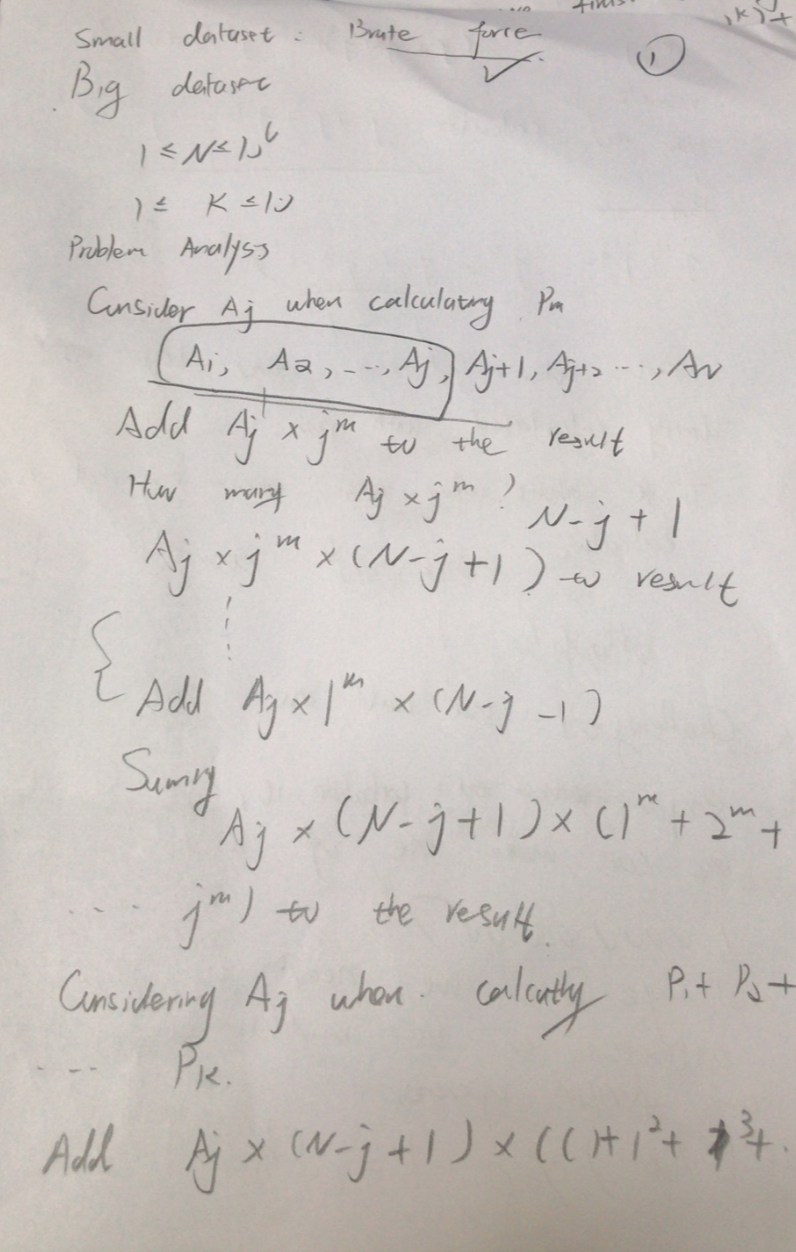 Small dataset : Brute force ①
Big dataset
1 ≤ N ≤ 10⁶
1 ≤ K ≤ 10
Problem Analysis
Consider Aj when calculating Pm
A1, A2, ..., Aj, Aj+1, Aj+2 ..., AN
Add Aj × j^m to the result
How many Aj × j^m ? N-j+1
Aj × j^m × (N-j+1) to result
Add Aj × 1^m × (N-j-1)
Sumry
Aj × (N-j+1) × (1^m + 2^m +
.... j^m) to the result.
Considering Aj when calcutly P1 + P2 +
... PK.
Add Aj × (N-j+1) × ((1+1²+ 1³+.